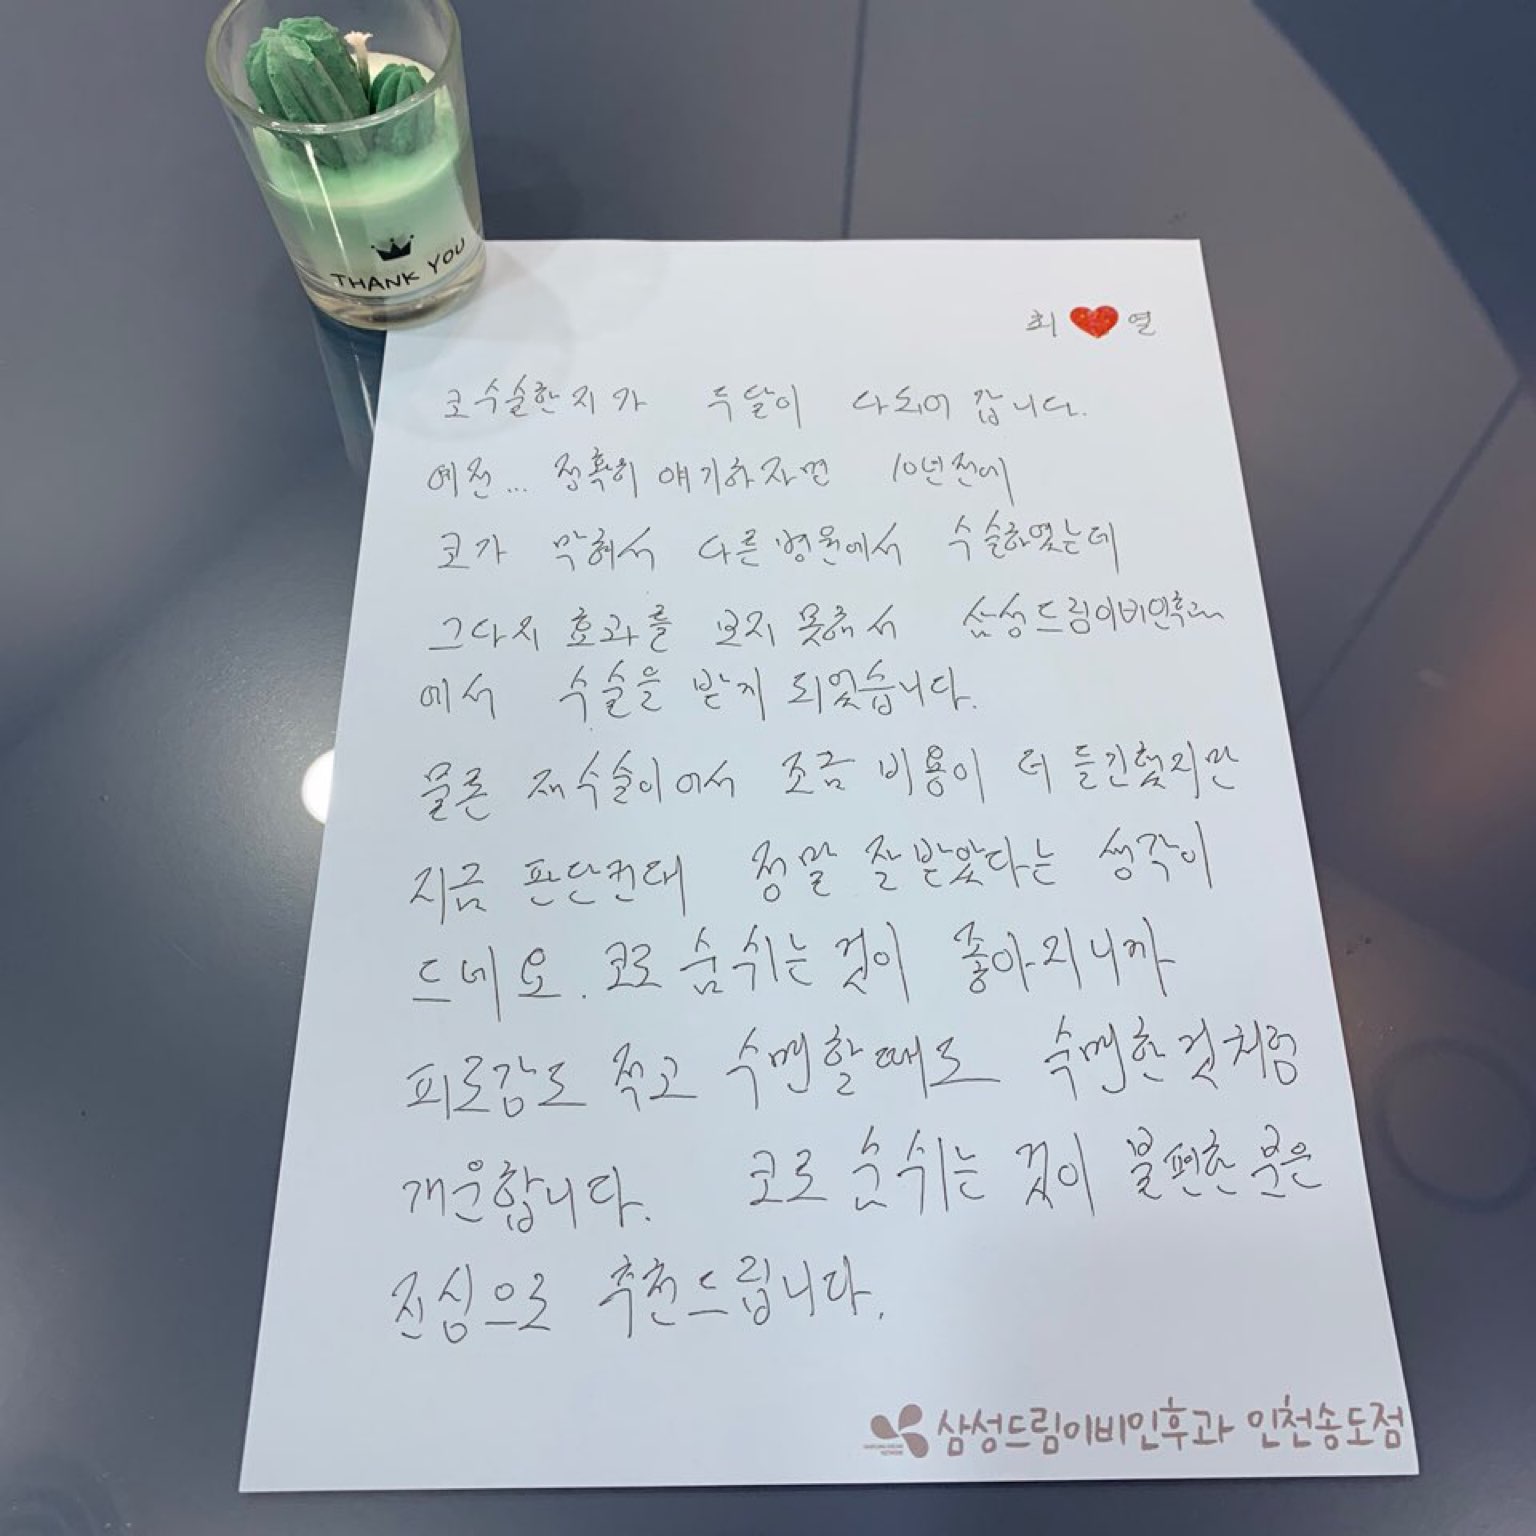 THANK YOU
최 ❤ 열
코수술한지가 두달이 다되어 갑니다.
예전... 정확히 얘기하자면 10년전에
코가 막혀서 다른병원에서 수술하였는데
그다지 효과를 보지 못해서 삼성드림이비인후과
에서 수술을 받게 되었습니다.
물론 재수술이어서 조금 비용이 더 들긴했지만
지금 판단컨대 정말 잘 받았다는 생각이
드네요. 코로 숨쉬는 것이 좋아지니까
피로감도 적고 수면할때도 숙면한것처럼
개운합니다. 코로 숨쉬는 것이 불편한 분은
진심으로 추천드립니다.
삼성드림이비인후과 인천송도점